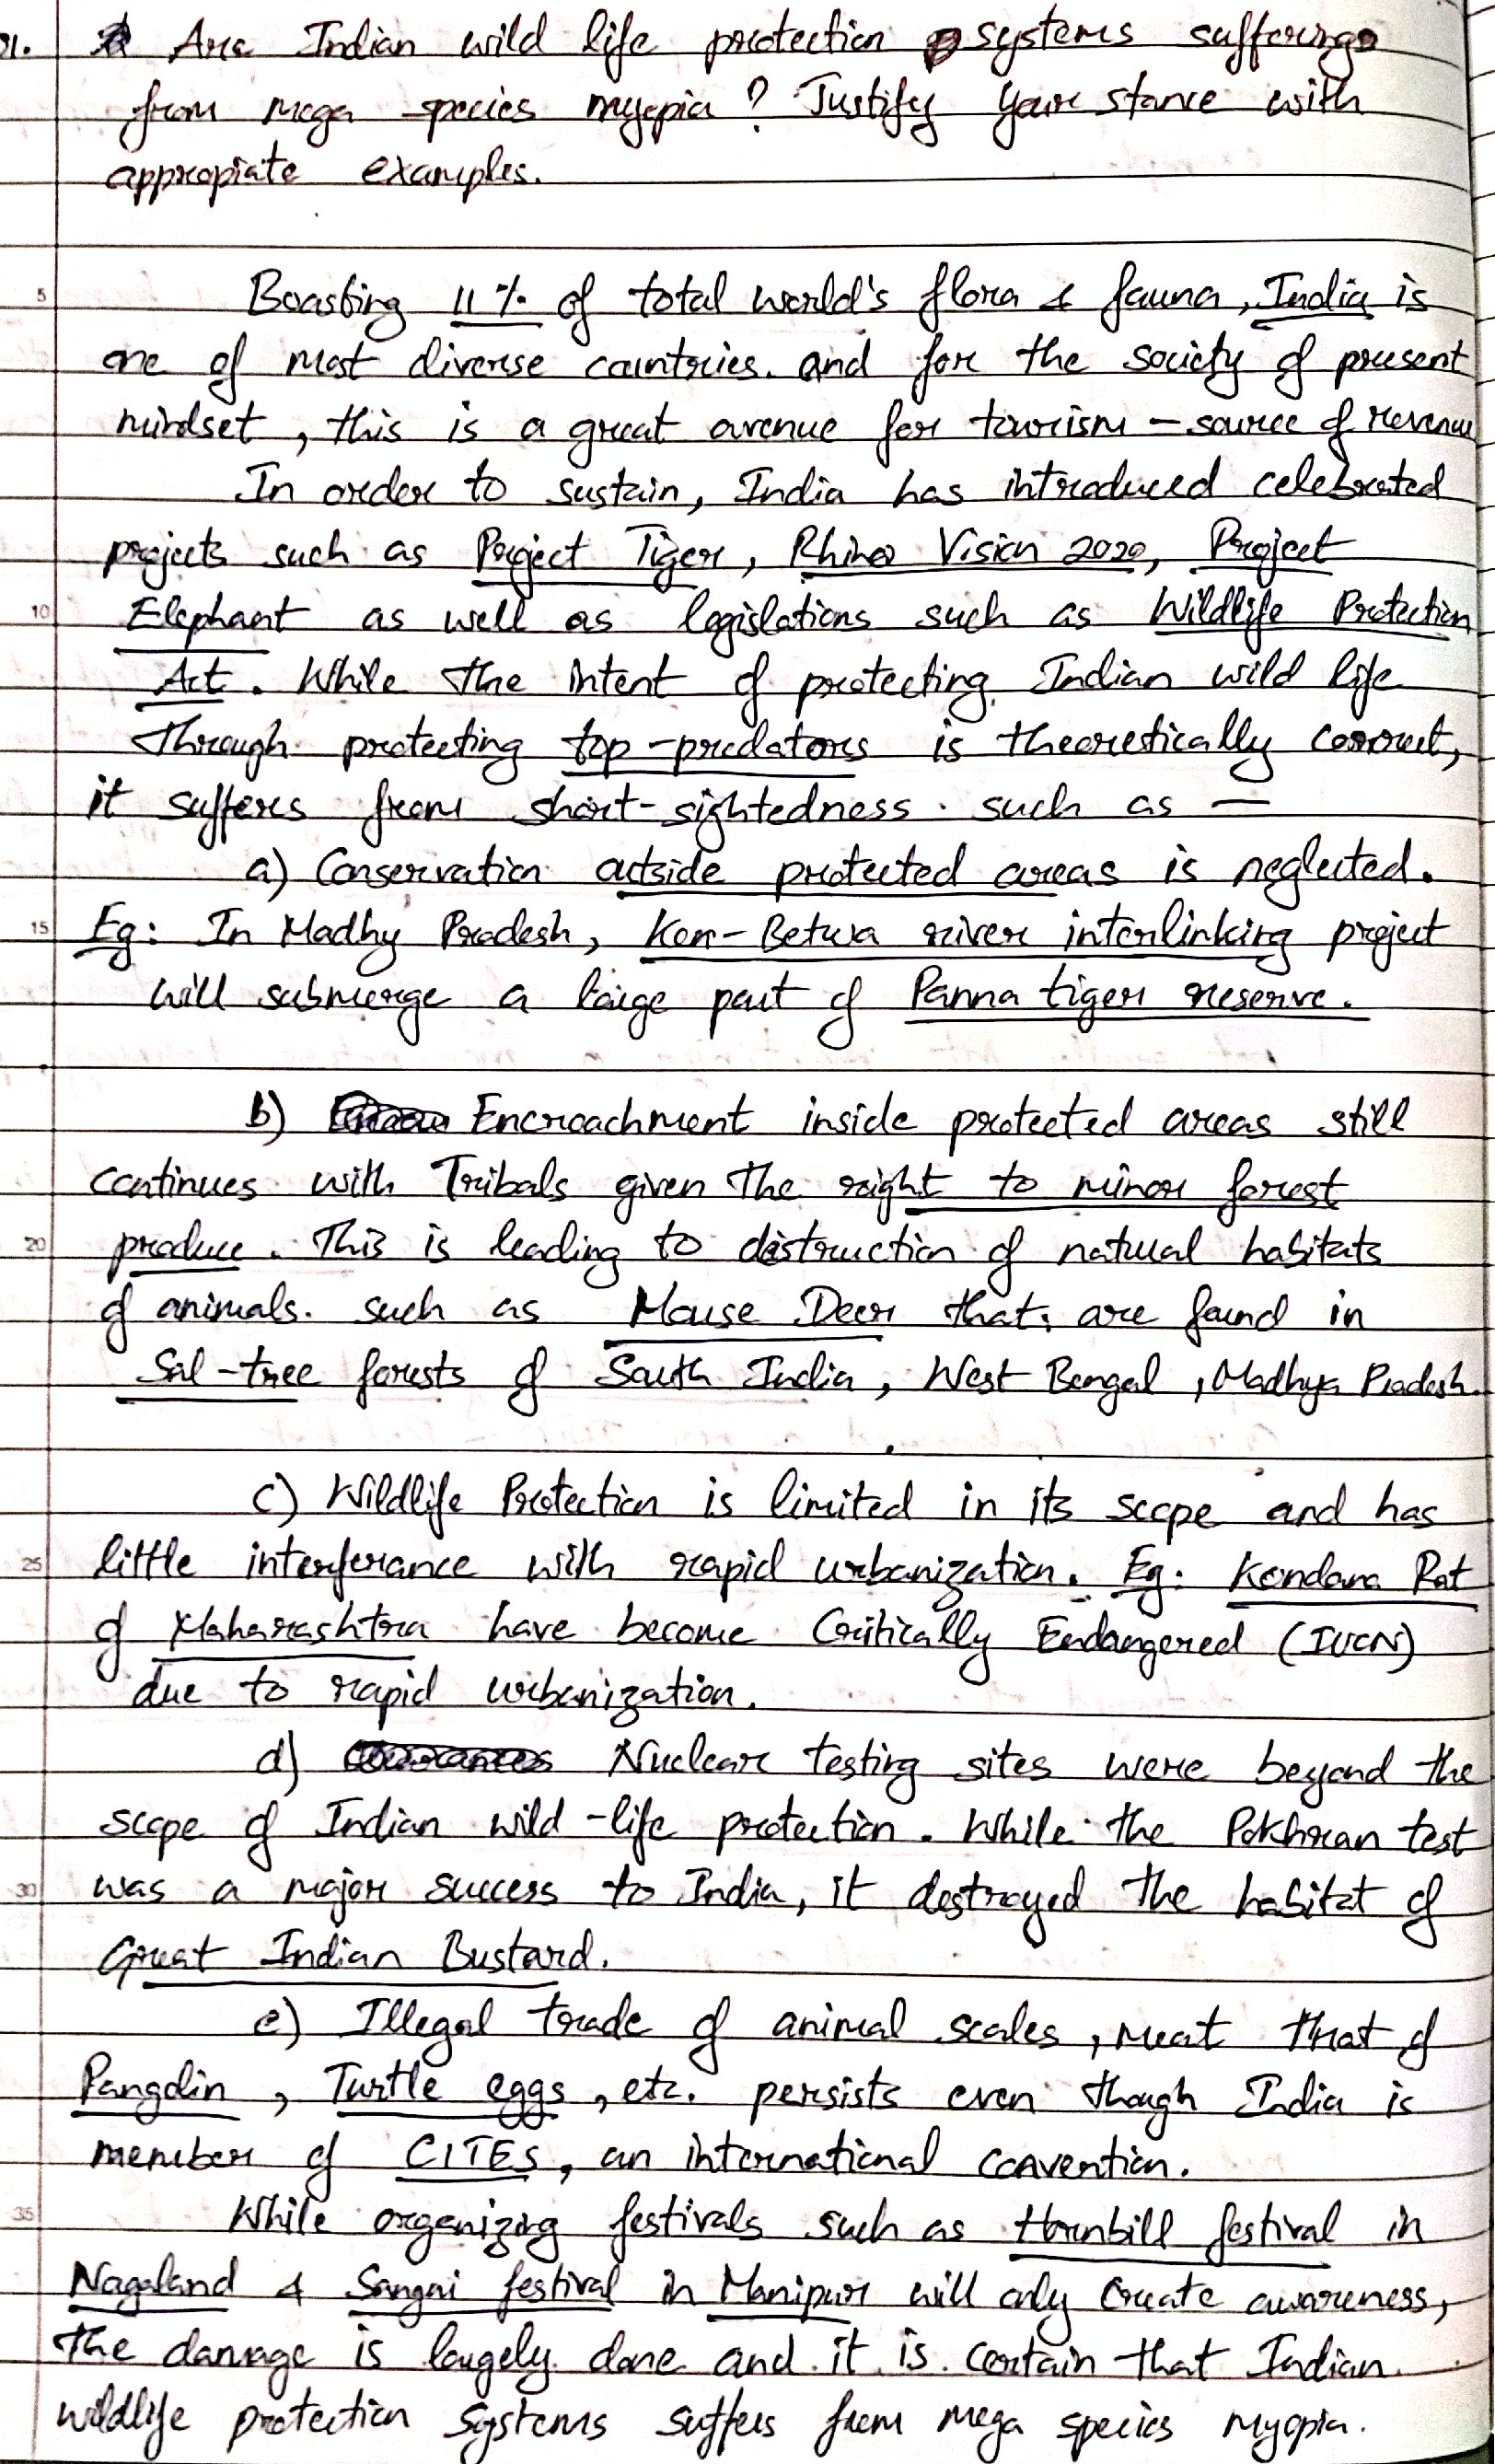 21. Are Indian wild life protection systems suffering
from mega species myopia? Justify your stance with
appropiate examples.
5 Boasting 11% of total world's flora & fauna, India is
one of most diverse countries. and for the society of present
mindset, this is a great avenue for tourism - source of revenue
In order to sustain, India has introduced celebrated
projects such as Project Tiger, Rhino Vision 2020, Project
10 Elephant as well as legislations such as Wildlife Protection
Act. While the intent of protecting Indian wild life
through protecting top-predators is theoretically correct,
it suffers from short-sightedness. such as —
a) Conservation outside protected areas is neglected.
15 Eg: In Madhy Pradesh, Ken-Betwa river interlinking project
will submerge a large part of Panna tiger reserve.
b) Encroachment inside protected areas still
continues with Tribals given the right to minor forest
20 produce. This is leading to distruction of natural habitats
of animals. such as Mouse Deer that are found in
Sal-tree forests of South India, West Bengal, Madhya Pradesh.
c) Wildlife Protection is limited in its scope and has
25 little interferance with rapid urbanization. Eg: Kondana Rat
of Maharashtra have become Critically Endangered (IUCN)
due to rapid urbanization.
d) Nuclear testing sites were beyond the
scope of Indian wild-life protection. While the Pokhran test
30 was a major success to India, it destroyed the habitat of
Great Indian Bustard.
e) Illegal trade of animal scales, meat that of
Pangolin, Turtle eggs, etc. persists even though India is
member of CITES, an international convention.
35 While organizing festivals such as Hornbill festival in
Nagaland & Sangai festival in Manipur will only create awareness,
the damage is largely done and it is certain that Indian
wildlife protection systems suffers from mega species myopia.